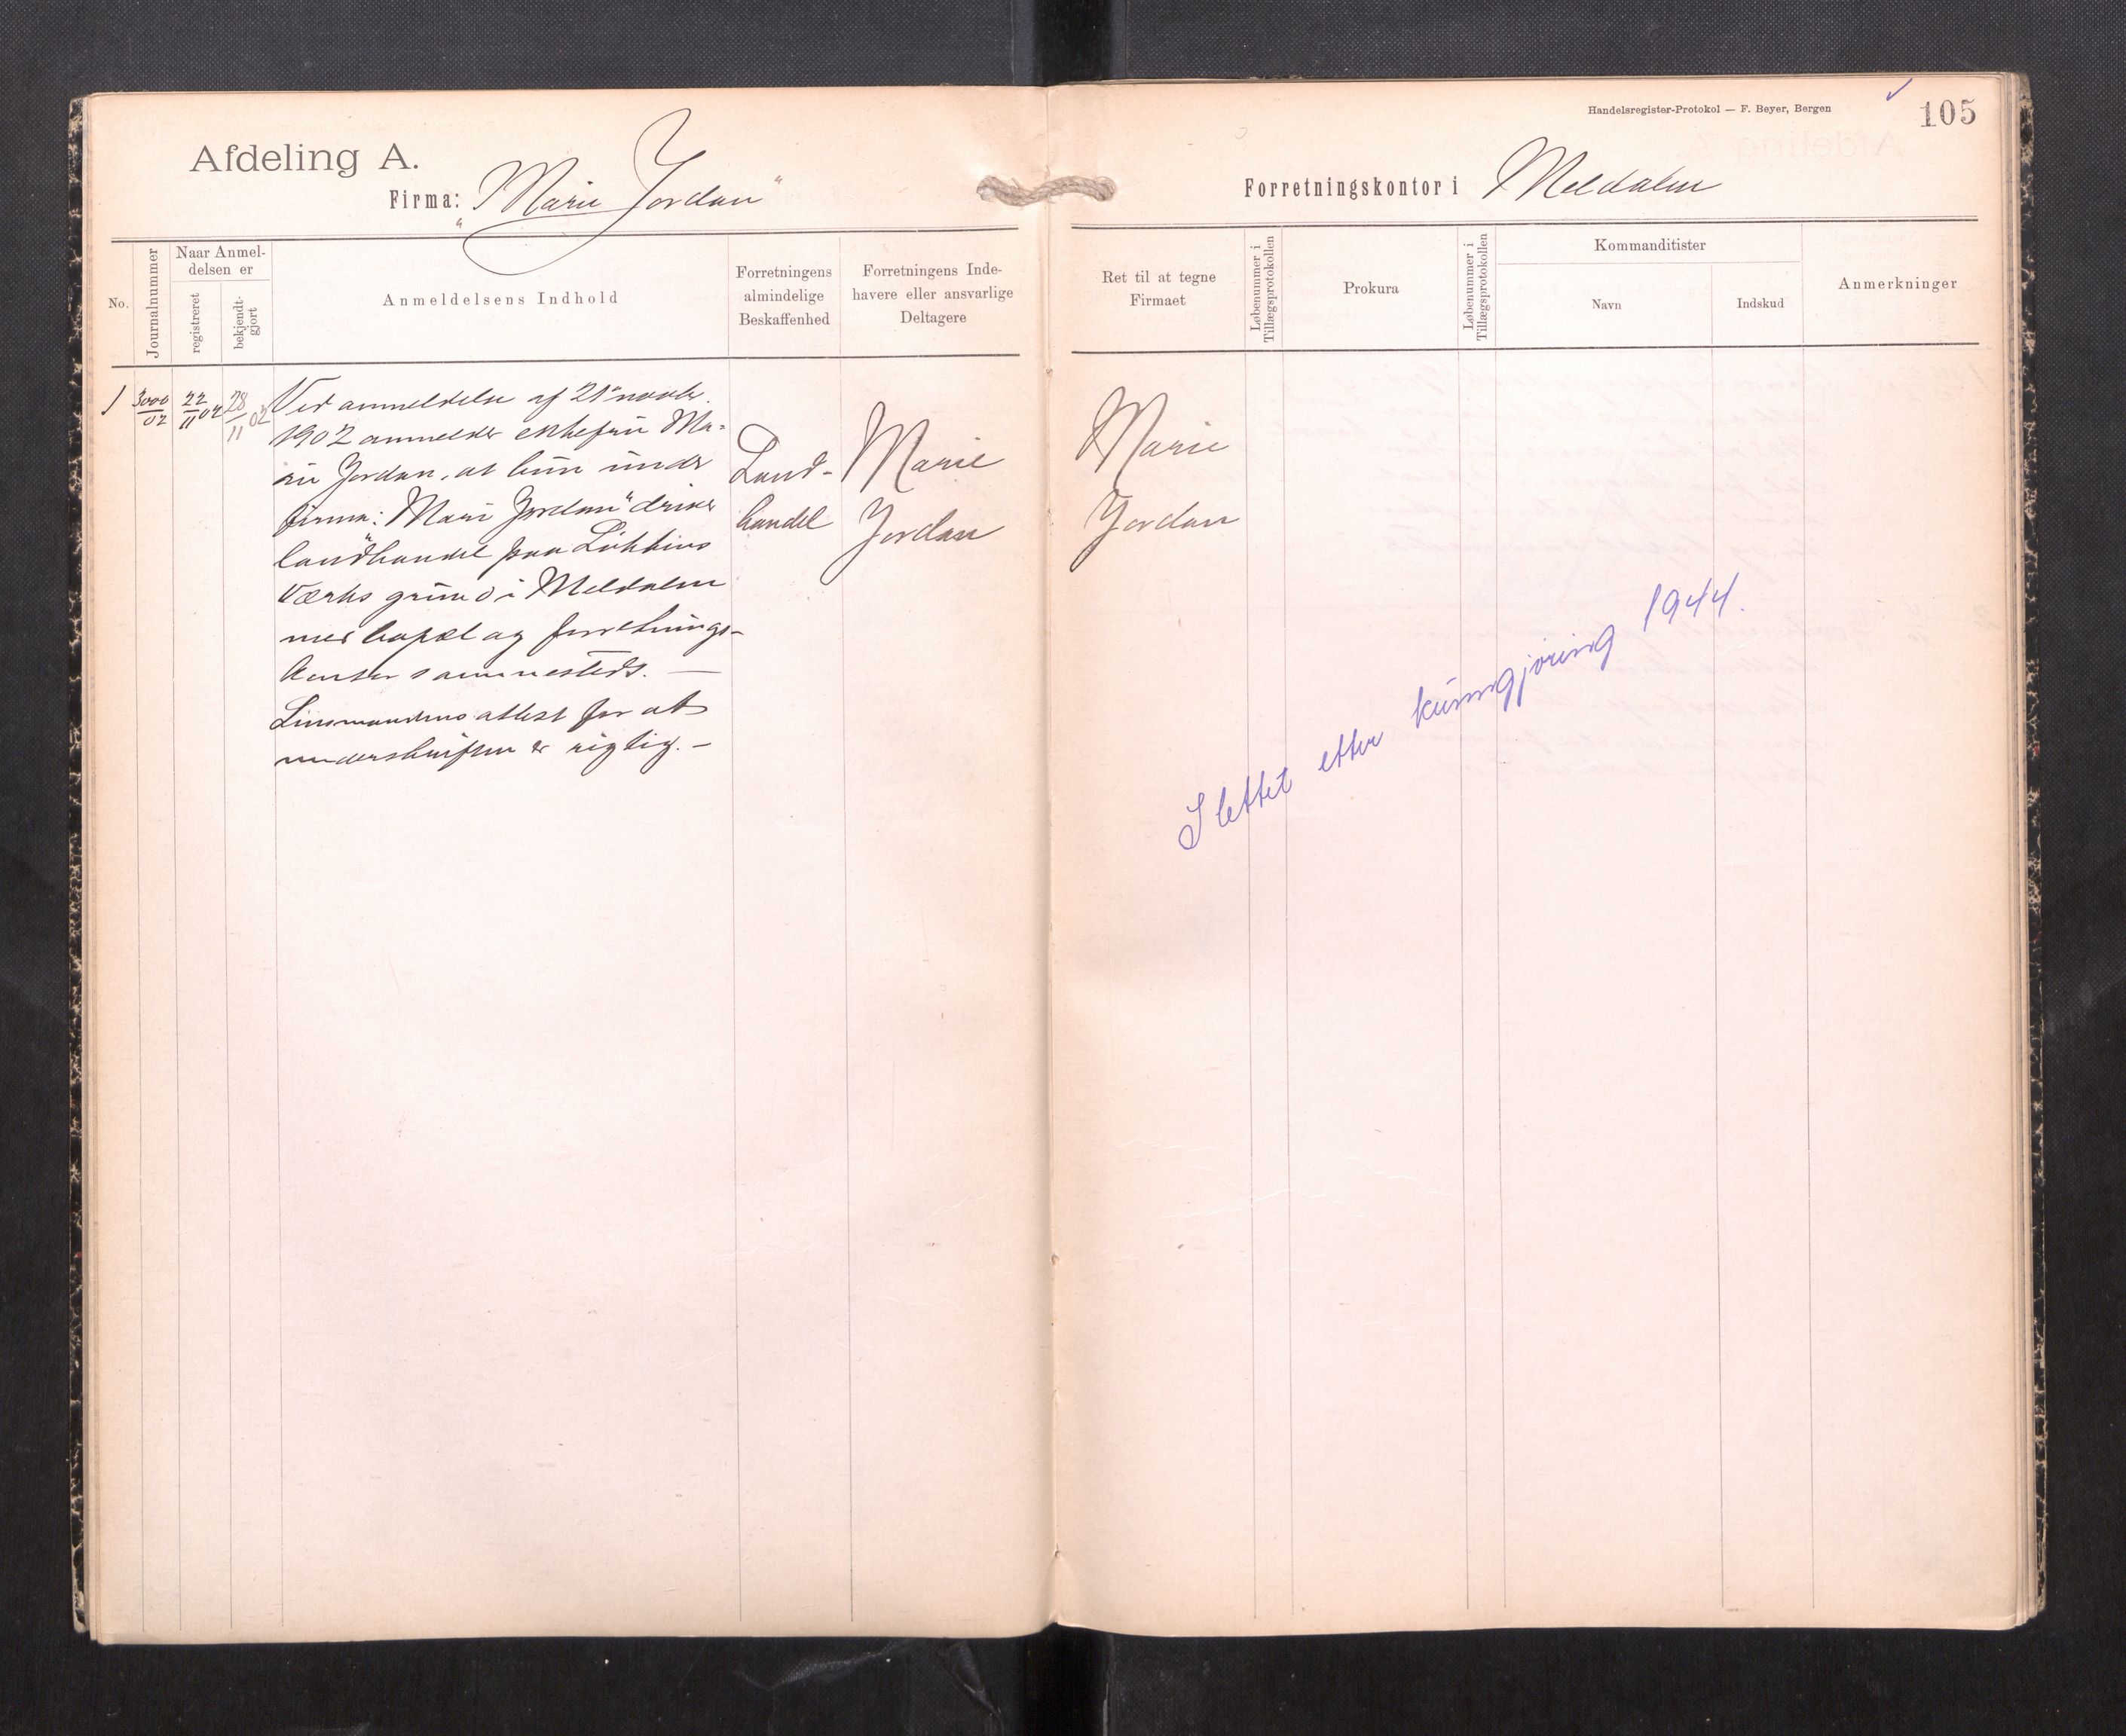 Afdeling A.
Firma: "Marie Jordan"
No.
Journalnummer
Naar Anmel-
delsen er
registreret
bekjendt-
gjort
Anmeldelsens Indhold
Forretningens
almindelige
Beskaffenhed
Forretningens Inde-
havere eller ansvarlige
Deltagere
1
3000
02
22
11 02
28
11 02
Ved anmeldelse af 21 novbr.
1902 anmelder ektefru Ma-
rie Jordan, at hun under
firma: "Marie Jordan" driver
landhandel paa Løkkens
Værks grund i Meldalen
med bopæl og forretnings-
kontor sammesteds. —
Linsmandens attest for at
underskriften er rigtig. —
Land-
handel
Marie
Jordan
Handelsregister-Protokol — F. Beyer, Bergen
105
Forretningskontor i Meldalen
Ret til at tegne
Firmaet
Løbenummer i
Tillægsprotokollen
Prokura
Løbenummer i
Tillægsprotokollen
Kommanditister
Navn
Indskud
Anmerkninger
Marie
Jordan
Slettet etter kunngjøring 1944.